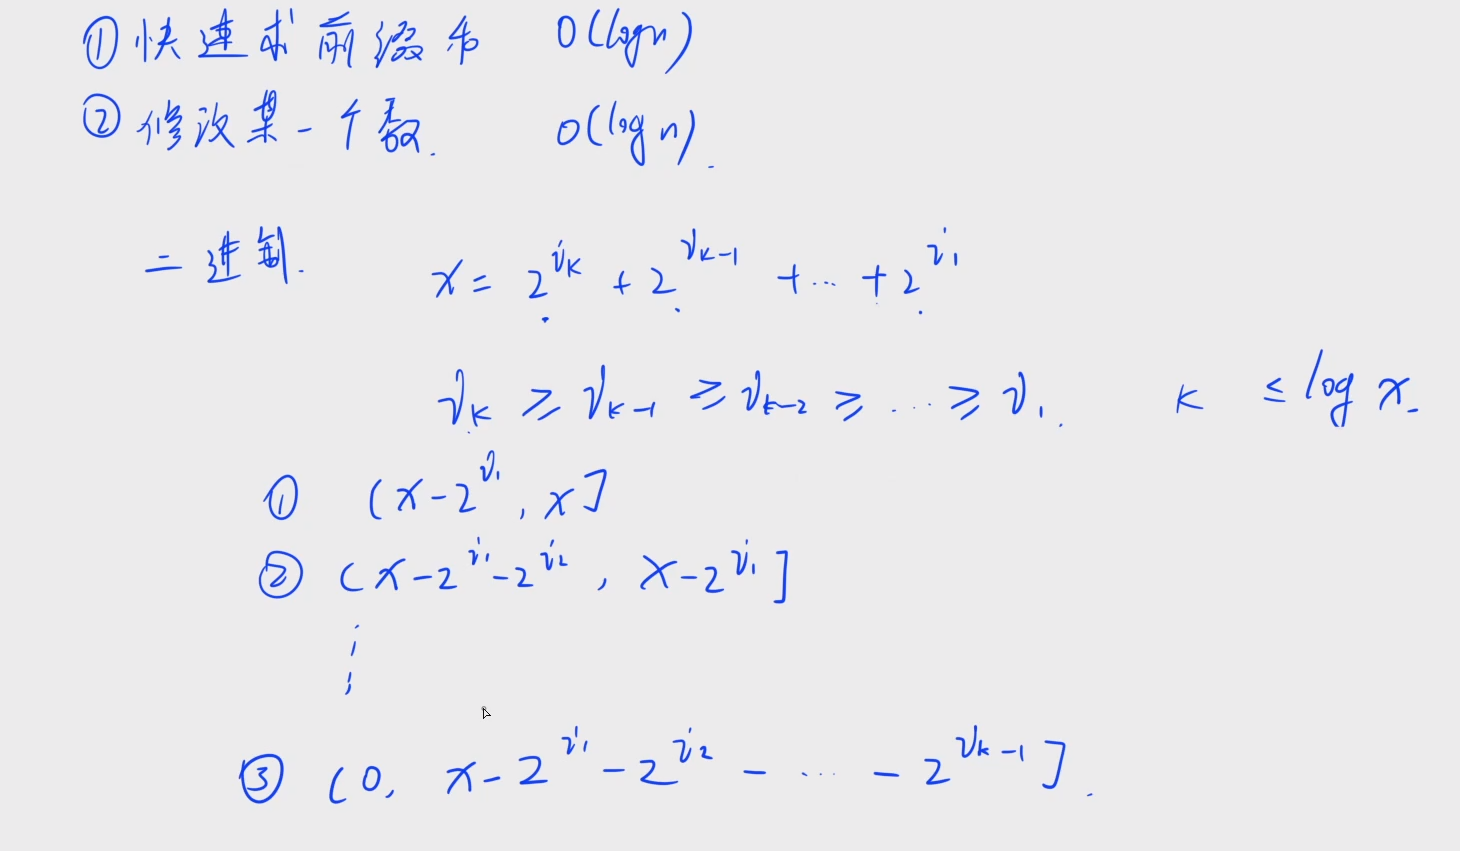 ① 快速求前缀和 O(logn)
② 修改某一个数. O(log n).
二进制. x = 2^{i_k} + 2^{i_{k-1}} + … + 2^{i_1}
i_k ≥ i_{k-1} ≥ i_{k-2} ≥ … ≥ i_1. k ≤ log x
① (x-2^{i_1}, x]
② (x-2^{i_1}-2^{i_2}, x-2^{i_1}]
⋮
③ (0, x-2^{i_1}-2^{i_2}-…-2^{i_{k-1}}].